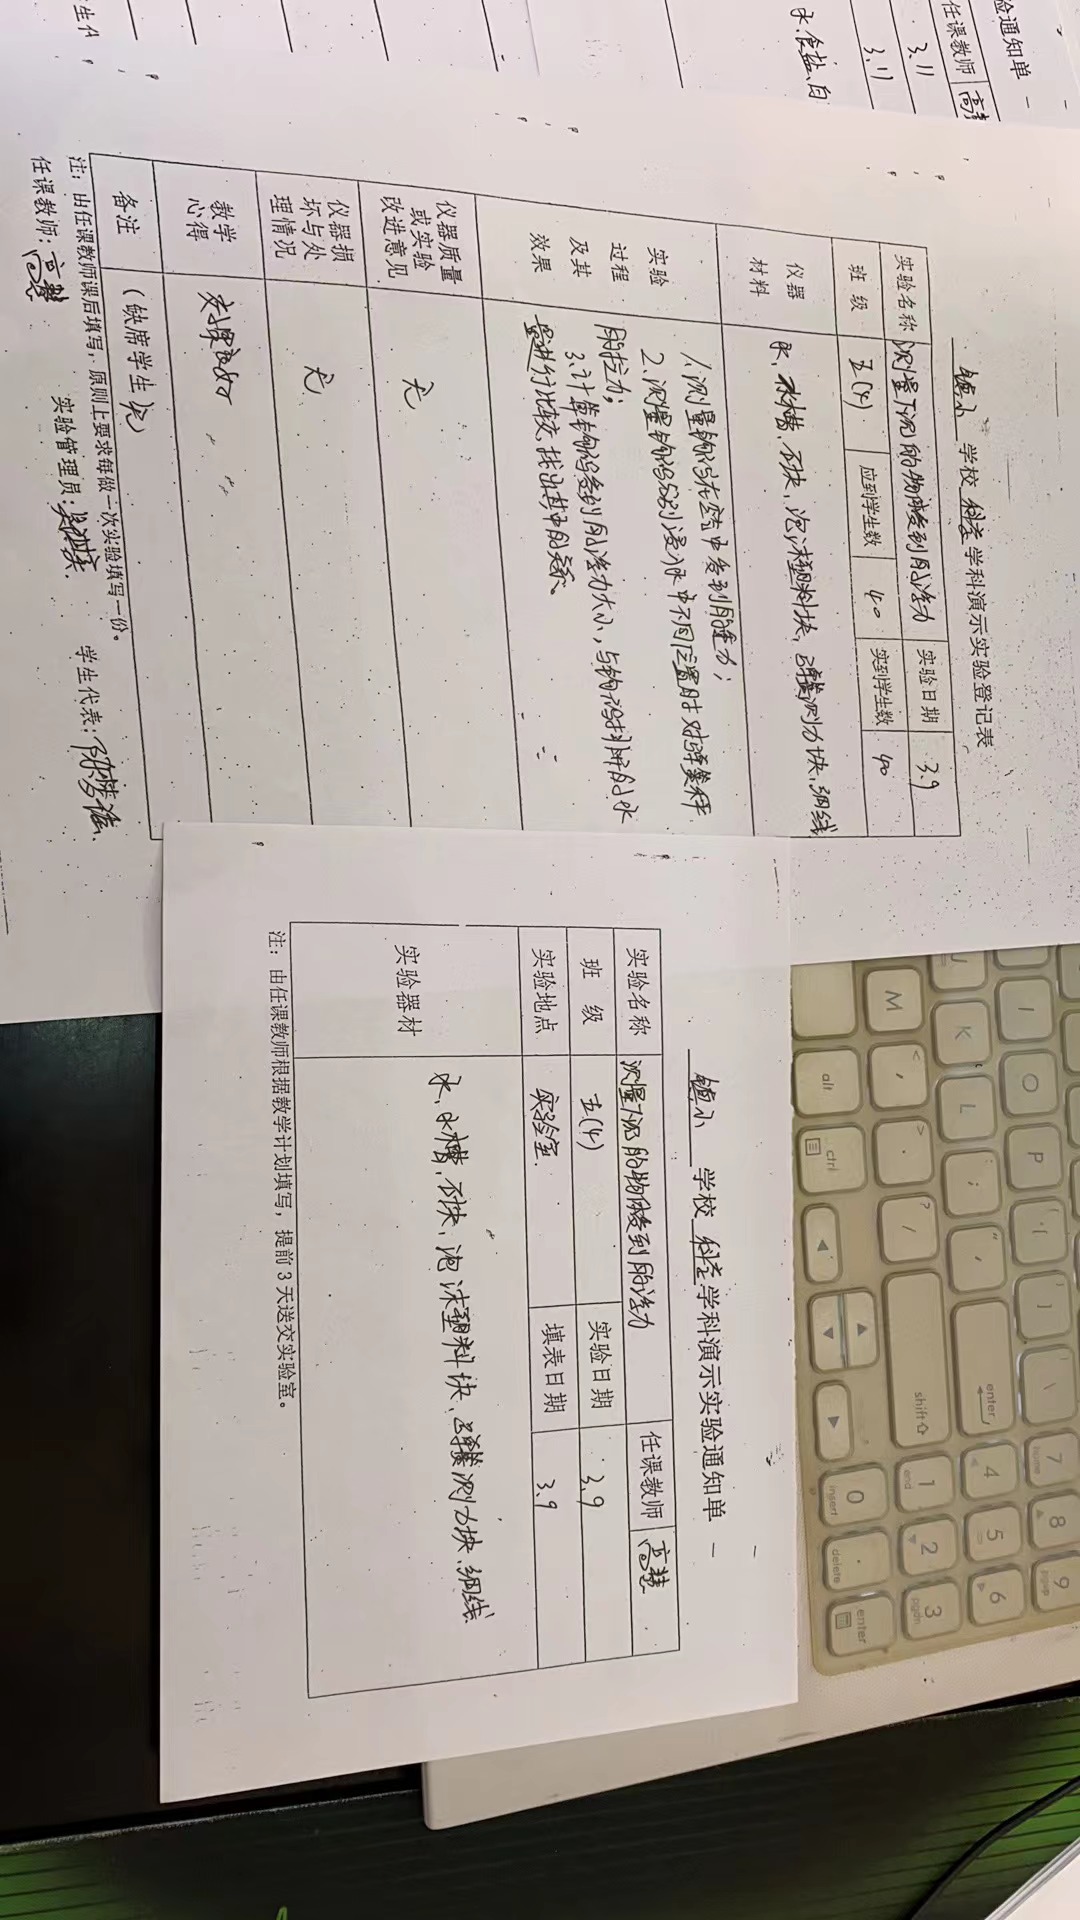 镇小 学校 科学 学科演示实验登记表
实验名称 测量下沉的物体受到的浮力 实验日期 3.9
班 级 五(4) 应到学生数 40 实到学生数 40
仪器
材料
水、水槽、石块、泡沫塑料块、测力块、细线
实验
过程
及其
效果
1.测量钩码在空气中受到的重力;
2.测量钩码分别浸入水中不同位置时对弹簧秤
的拉力;
3.计算钩码受到的浮力大小,与钩码排开的水
量进行比较,找出其中的关系。
仪器质量
或实验
改进意见
无
仪器损
坏与处
理情况
无
教学
心得
效果良好
备注 (缺席学生)无
注:由任课教师课后填写,原则上要求每做一次实验填写一份。
任课教师:高慧 实验管理员: 学生代表:陈梦
镇小 学校 科学 学科演示实验通知单
实验名称 测量下沉的物体受到的浮力 任课教师 高慧
班 级 五(4) 实验日期 3.9
实验地点 实验室 填表日期 3.9
实验器材
水、水槽、石块、泡沫塑料块、测力块、细线
注:由任课教师根据教学计划填写,提前3天送交实验室。
验通知单
任课教师 高慧
3.11
3.11
水、食盐、白